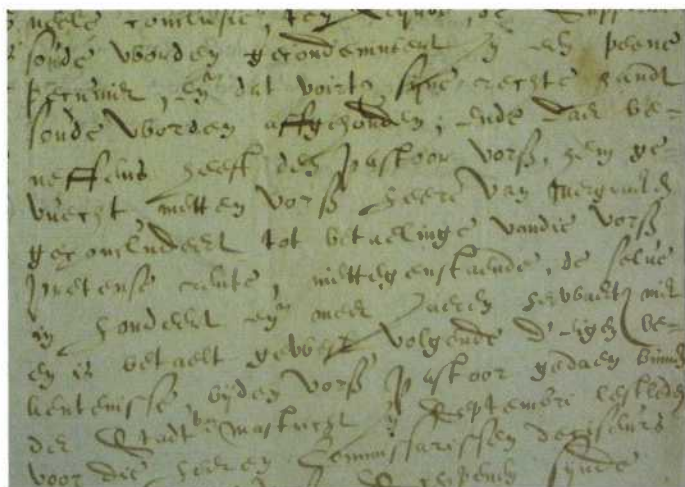 meere conclusie, ten eynde, de
soude worden gecondemneert in een peene
pecuniel, en dat voirts syne rechte handt
soude worden affgehouden; ende daer be-
neffens heeft den pastoor vors. hem ge-
vuecht metten vors. heere van
geconcludeert tot betaelinge vandie vors.
pretense rente, niettegenstaende, de selve
in hondert en meer jaeren herwaerts niet
en is betaelt geweest volgende d'eigen be-
kentenisse, byden vors. pastoor gedaen binnen
der Stadt Mastricht in Septembri lestleden
voor die heeren Commissarissen deciseurs
synde